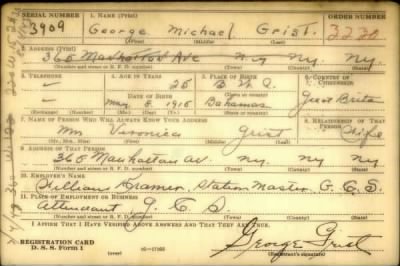 SERIAL NUMBER 1. NAME (Print) ORDER NUMBER
3909 George Michael Grist. 3220
(First) (Middle) (Last)
2. ADDRESS (Print)
365 Manhattan Ave N.Y. N.Y. N.Y.
(Number and street or R. F. D. number) (Town) (County) (State)
3. TELEPHONE 4. AGE IN YEARS 5. PLACE OF BIRTH 6. COUNTRY OF CITIZENSHIP
— 25 B. W. I.
DATE OF BIRTH
— May 8 1915 Bahamas Great Britain
(Mo.) (Day) (Yr.)
7. NAME OF PERSON WHO WILL ALWAYS KNOW YOUR ADDRESS 8. RELATIONSHIP OF THAT PERSON
Mrs Veronica Grist Wife
(First) (Middle) (Last)
9. ADDRESS OF THAT PERSON
365 Manhattan av. N.Y. N.Y. N.Y.
(Number and street or R. F. D. number) (Town) (County) (State)
10. EMPLOYER'S NAME
William Kramer, Station Master, G. C. S.
11. PLACE OF EMPLOYMENT OR BUSINESS
Attendant G. C. S
(Number and street or R. F. D. number) (Town) (County) (State)
I AFFIRM THAT I HAVE VERIFIED ABOVE ANSWERS AND THAT THEY ARE TRUE.
REGISTRATION CARD
D. S. S. FORM 1
George Grist
(Registrant's signature)